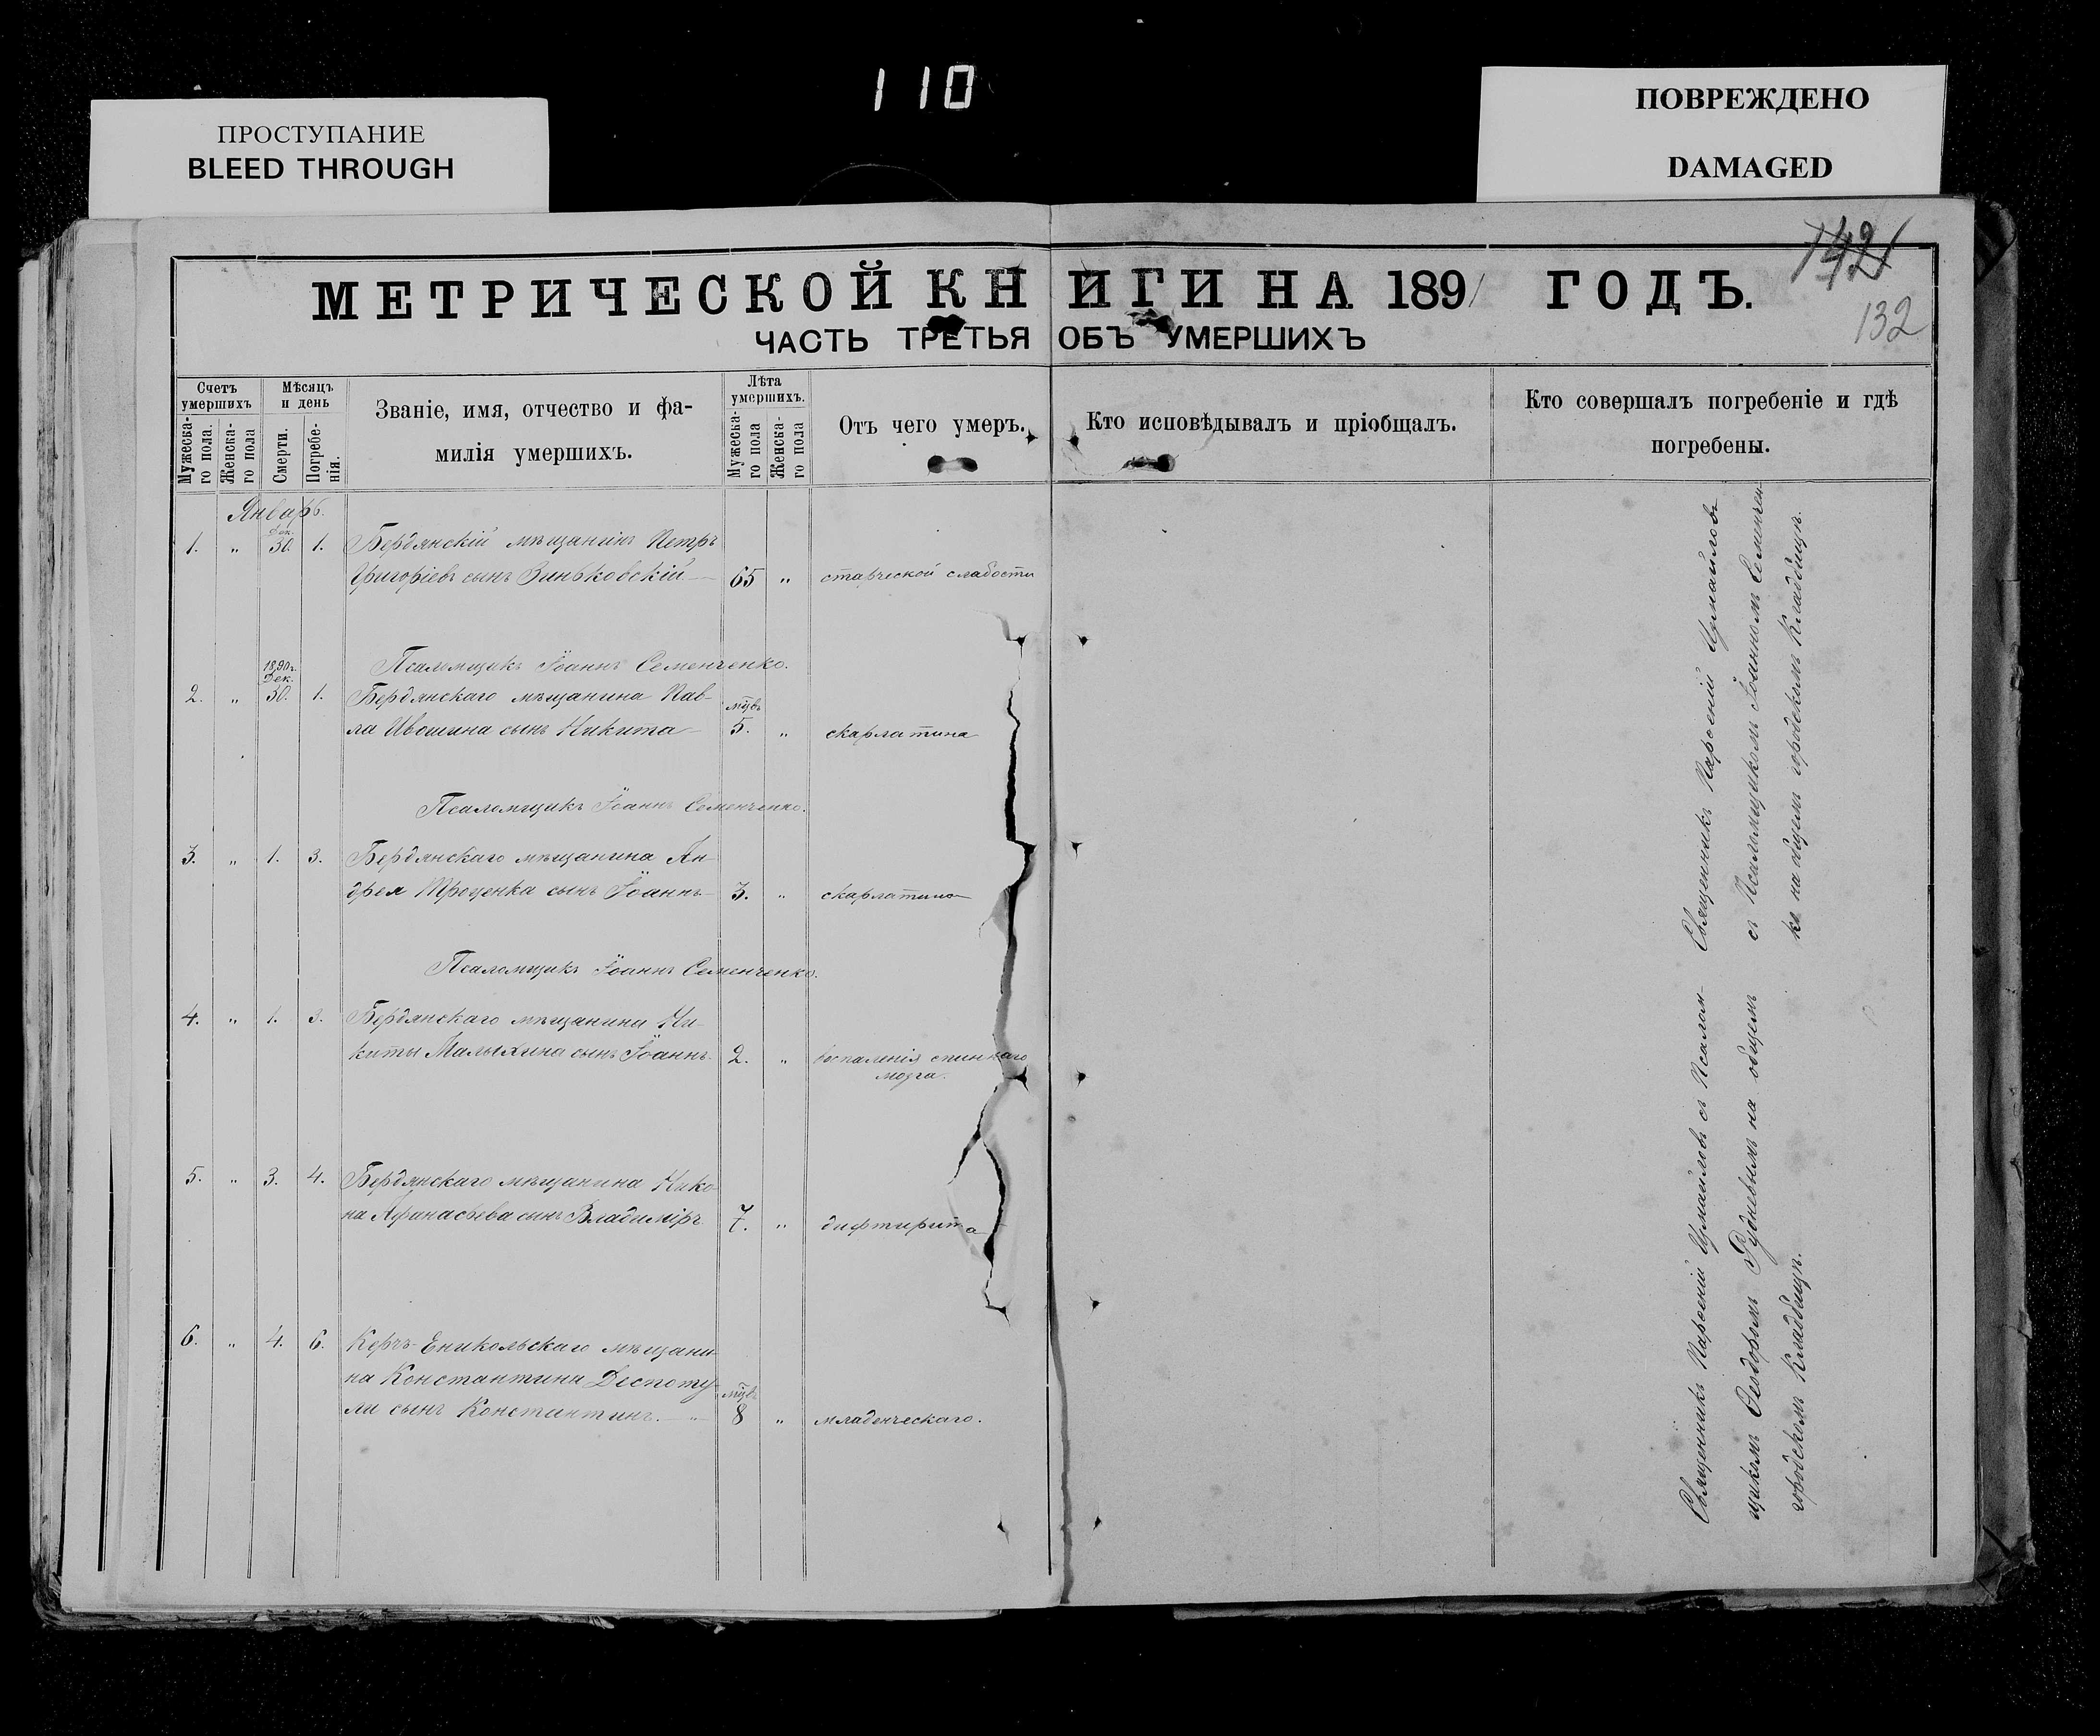 110
ПРОСТУПАНИЕ
BLEED THROUGH
ПОВРЕЖДЕНО
DAMAGED
142
132
МЕТРИЧЕСКОЙ КНИГИ НА 1891 ГОДЪ.
ЧАСТЬ ТРЕТЬЯ ОБЪ УМЕРШИХЪ
Счетъ умершихъ
Мужеска-го пола.
Женска-го пола
Мѣсяцъ и день
Смерти.
Погребе-нія.
Званіе, имя, отчество и фа-
милія умершихъ.
Лѣта умершихъ.
Мужеска-го пола
Женска-го пола
Отъ чего умеръ.
Кто исповѣдывалъ и пріобщалъ.
Кто совершалъ погребеніе и гдѣ
погребены.
Январь.
Дек.
1. " 30. 1. Бердянскій мѣщанинъ Петръ
Григоріевъ сынъ Зиньковскій 65 " старческой слабости
Псаломщикъ Іоаннъ Семенченко.
1890г.
Дек.
2. " 30. 1. Бердянскаго мѣщанина Пав-
мцвъ
ла Ивошина сынъ Никита 5. " скарлатина
Псаломщикъ Іоаннъ Семенченко.
3. " 1. 3. Бердянскаго мѣщанина Ан-
дрея Троценка сынъ Іоаннъ 3. " скарлатина
Псаломщикъ Іоаннъ Семенченко.
4. " 1. 3. Бердянскаго мѣщанина Ни-
киты Малыхина сынъ Іоаннъ. 2. " воспаленія спиннаго
мозга.
5. " 3. 4. Бердянскаго мѣщанина Нико-
на Афанасьева сынъ Владиміръ 7. " дифтирита
6. " 4. 6. Керчь-Еникольскаго мѣщани-
на Константина Деспоту-
мцвъ
ли сынъ Константинъ. 8 " младенческаго.
Священникъ Парѳеній Измаиловъ
съ Псаломщикомъ Іоанномъ Семенчен-
ко на общемъ городскомъ Кладбищѣ.
Священникъ Парѳеній Измаиловъ съ Псалом-
щикомъ Ѳеодоромъ Рудневымъ на общемъ
городскомъ Кладбищѣ.